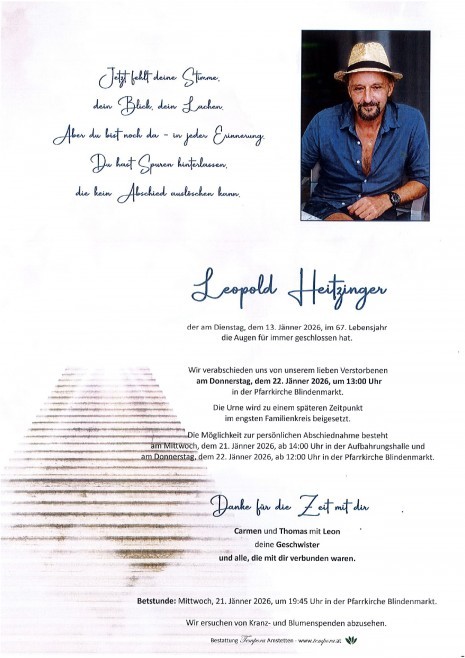 Jetzt fehlt deine Stimme,
dein Blick, dein Lachen.
Aber du bist noch da – in jeder Erinnerung.
Du hast Spuren hinterlassen,
die kein Abschied auslöschen kann.
Leopold Heitzinger
der am Dienstag, dem 13. Jänner 2026, im 67. Lebensjahr
die Augen für immer geschlossen hat.
Wir verabschieden uns von unserem lieben Verstorbenen
am Donnerstag, dem 22. Jänner 2026, um 13:00 Uhr
in der Pfarrkirche Blindenmarkt.
Die Urne wird zu einem späteren Zeitpunkt
im engsten Familienkreis beigesetzt.
Die Möglichkeit zur persönlichen Abschiednahme besteht
am Mittwoch, dem 21. Jänner 2026, ab 14:00 Uhr in der Aufbahrungshalle und
am Donnerstag, dem 22. Jänner 2026, ab 12:00 Uhr in der Pfarrkirche Blindenmarkt.
Danke für die Zeit mit dir
Carmen und Thomas mit Leon
deine Geschwister
und alle, die mit dir verbunden waren.
Betstunde: Mittwoch, 21. Jänner 2026, um 19:45 Uhr in der Pfarrkirche Blindenmarkt.
Wir ersuchen von Kranz- und Blumenspenden abzusehen.
Bestattung Tempora Amstetten - www.tempora.at